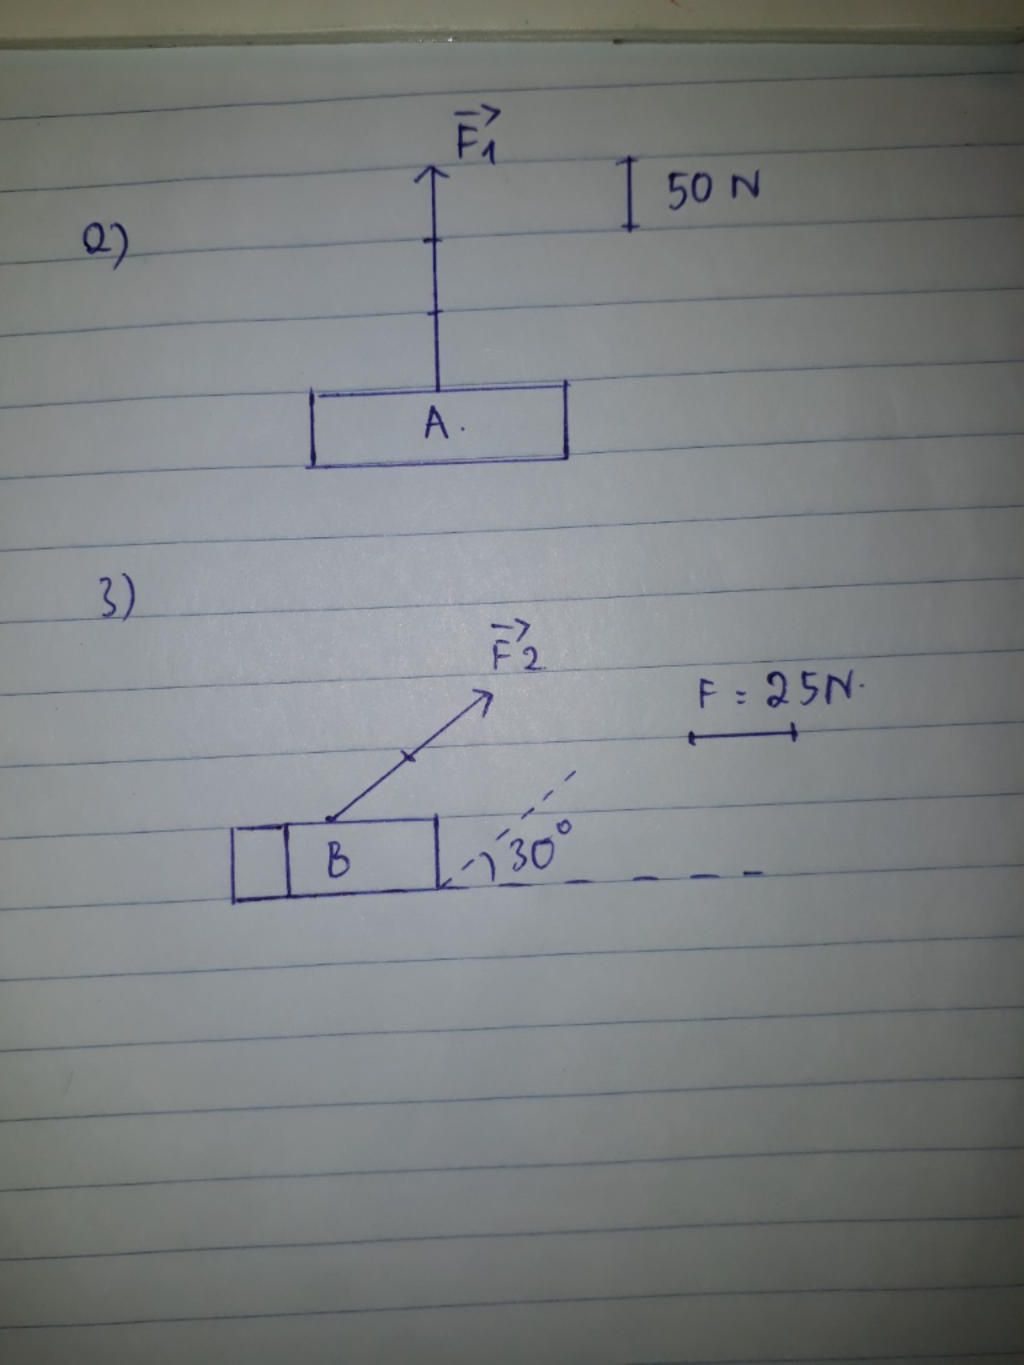 F₁
50 N
2)
A.
3)
F₂
F = 25N.
B
30°